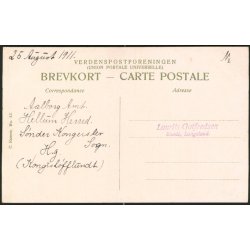 25 August 1911.
VERDENSPOSTFORENINGEN
(UNION POSTALE UNIVERSELLE)
BREVKORT — CARTE POSTALE
Correspondance
Adresse
Aalborg Amt.
Hellum Herred
Sønder Kongerslev
Sogn.
Lauritz Gotfredsen